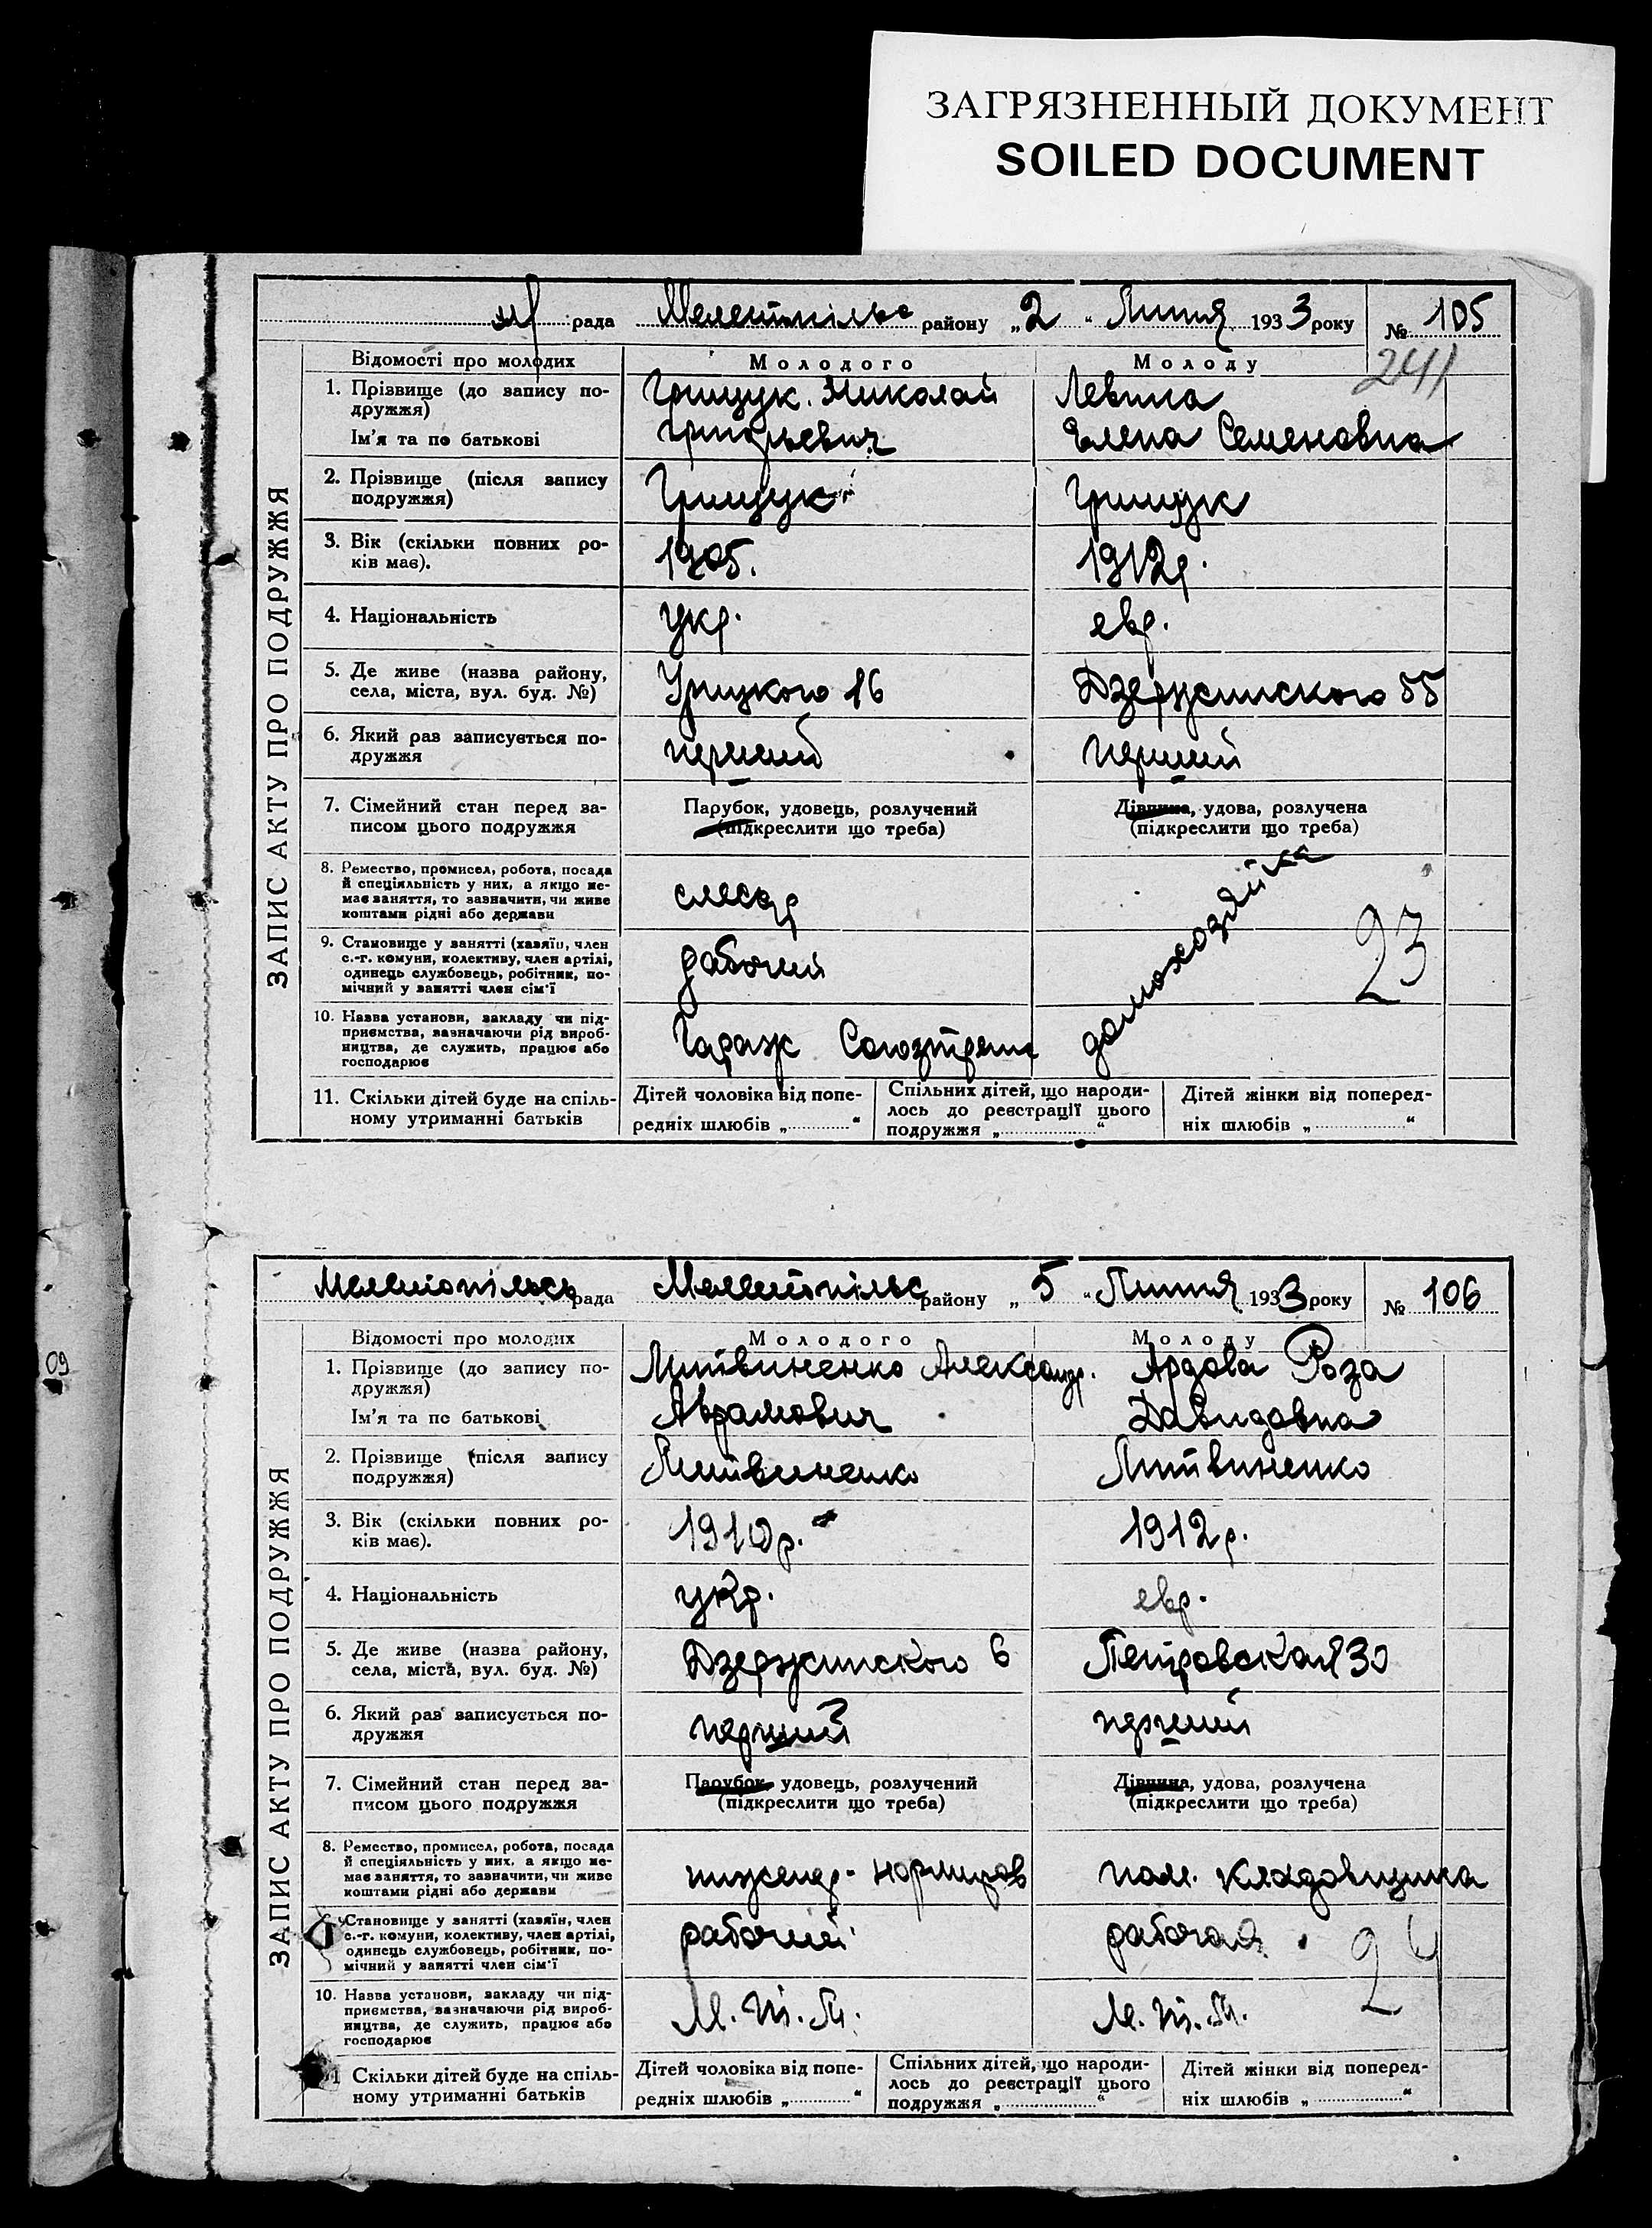 ЗАГРЯЗНЕННЫЙ ДОКУМЕНТ
SOILED DOCUMENT
рада Мелетпільс району „2“ Липня 1933 року № 105
241
Відомості про молодих Молодого Молоду
ЗАПИС АКТУ ПРО ПОДРУЖЖЯ
1. Прізвище (до запису подружжя) Грищук Николай Левина
Ім'я та по батькові Григорьевич Елена Семеновна
2. Прізвище (після запису подружжя) Грищук Грищук
3. Вік (скільки повних років має). 1905. 1912р.
4. Національність укр. евр.
5. Де живе (назва району, села, міста, вул. буд. №) Урицкого 16 Дзержинского 55
6. Який раз записується подружжя перший перший
7. Сімейний стан перед записом цього подружжя Парубок, удовець, розлучений (підкреслити що треба) Дівчина, удова, розлучена (підкреслити що треба)
8. Ремество, промисел, робота, посада й спеціяльність у них, а якщо немає заняття, то зазначити, чи живе коштами рідні або держави слесар домохозяйка
9. Становище у занятті (хазяїн, член с.-г. комуни, колективу, член артілі, одинець службовець, робітник, помічний у занятті член сім'ї рабочий 23
10. Назва установи, закладу чи підприємства, зазначаючи рід виробництва, де служить, працює або господарює Гараж Союзтранс
11. Скільки дітей буде на спільному утриманні батьків Дітей чоловіка від попередніх шлюбів „ “ Спільних дітей, що народилось до реєстрації цього подружжя „ “ Дітей жінки від попередніх шлюбів „ “
Мелитопільсь рада Мелетопільс району „5“ Липня 1933 року № 106
09
Відомості про молодих Молодого Молоду
ЗАПИС АКТУ ПРО ПОДРУЖЖЯ
1. Прізвище (до запису подружжя) Литвиненко Александр. Ардова Роза
Ім'я та по батькові Абрамович Давидовна
2. Прізвище (після запису подружжя) Литвиненко Литвиненко
3. Вік (скільки повних років має). 1910р. 1912р.
4. Національність укр. евр.
5. Де живе (назва району, села, міста, вул. буд. №) Дзержинского 6 Петровская 30
6. Який раз записується подружжя перший перший
7. Сімейний стан перед записом цього подружжя Парубок, удовець, розлучений (підкреслити що треба) Дівчина, удова, розлучена (підкреслити що треба)
8. Ремество, промисел, робота, посада й спеціяльність у них, а якщо немає заняття, то зазначити, чи живе коштами рідні або держави инженер-нормиров пом. кладовщика
Становище у занятті (хазяїн, член с.-г. комуни, колективу, член артілі, одинець службовець, робітник, помічний у занятті член сім'ї рабочий рабочая 24
10. Назва установи, закладу чи підприємства, зазначаючи рід виробництва, де служить, працює або господарює
1 Скільки дітей буде на спільному утриманні батьків Дітей чоловіка від попередніх шлюбів „ “ Спільних дітей, що народилось до реєстрації цього подружжя „ “ Дітей жінки від попередніх шлюбів „ “